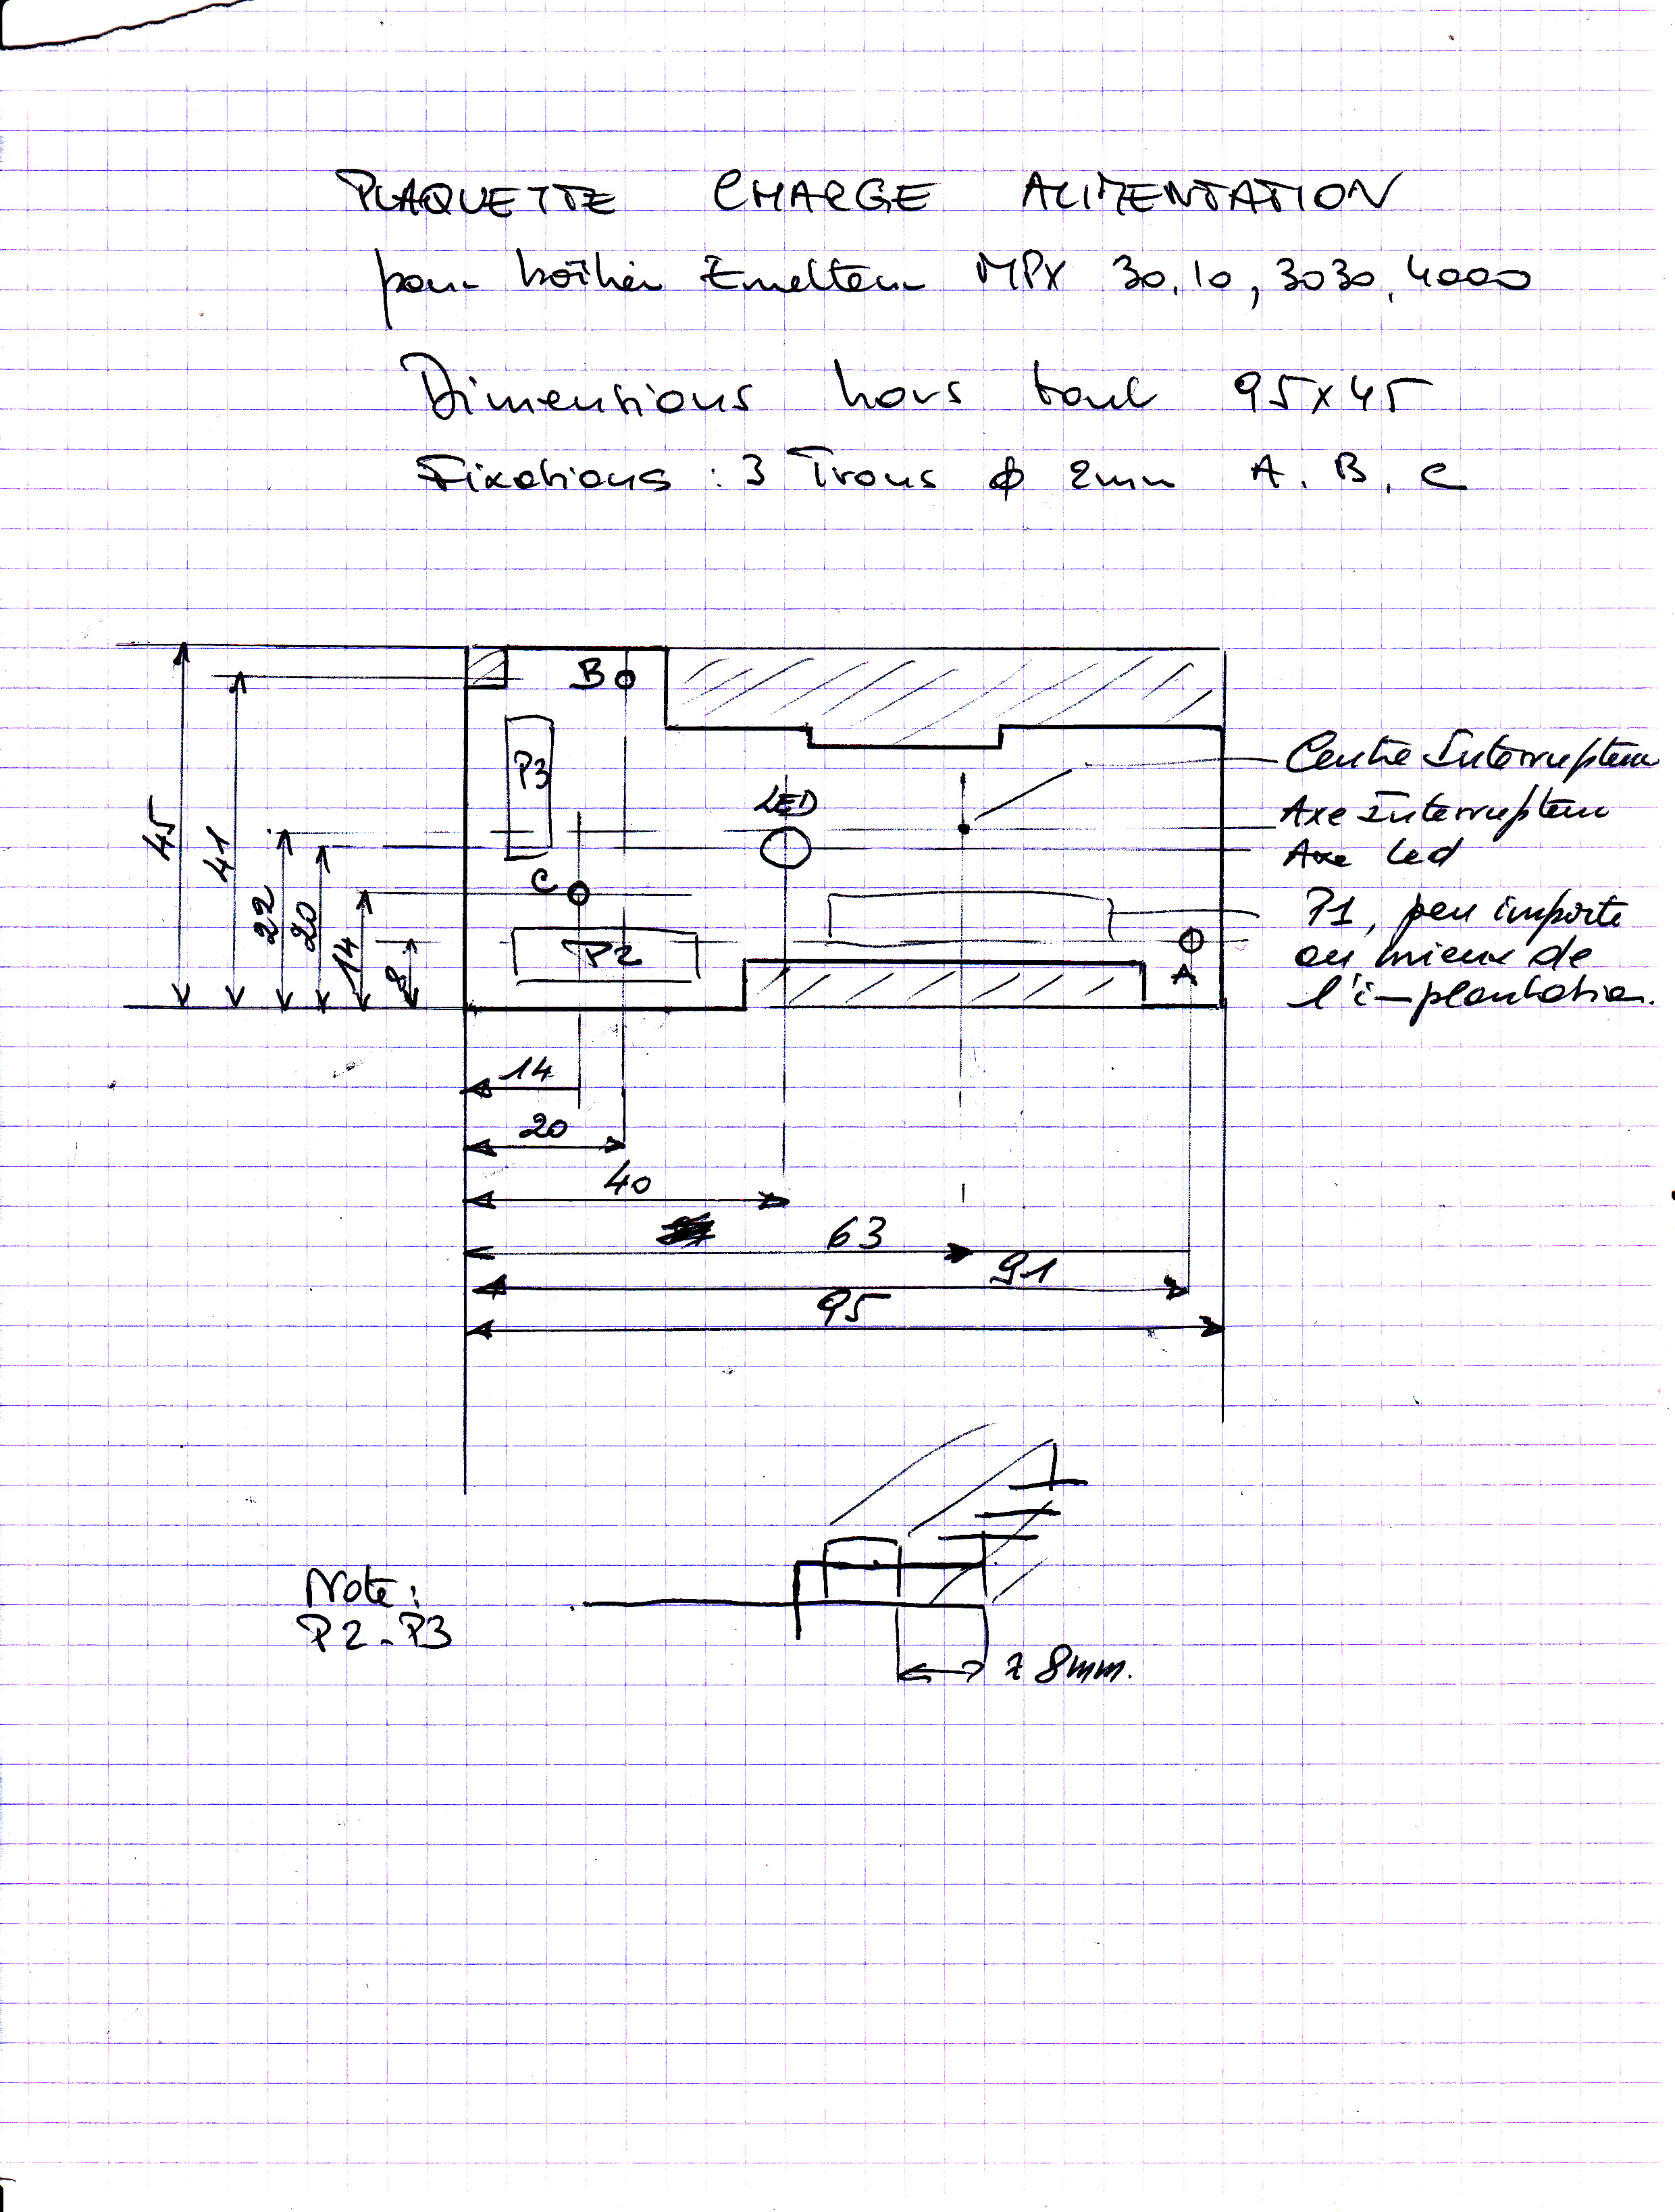 PLAQUETTE CHARGE ALIMENTATION
pour boîtier Emetteur MPX 30.10, 3030, 4000
Dimensions hors tout 95x45
Fixations : 3 Trous ϕ 2mm A. B. C
B
P3
LED
C
P2
A
Centre Interrupteur
Axe Interrupteur
Axe Led
P1, peu importe
au mieux de
l'implantation.
45
41
22
20
14
8
14
20
40
63
91
95
Note :
P2 - P3
8mm.